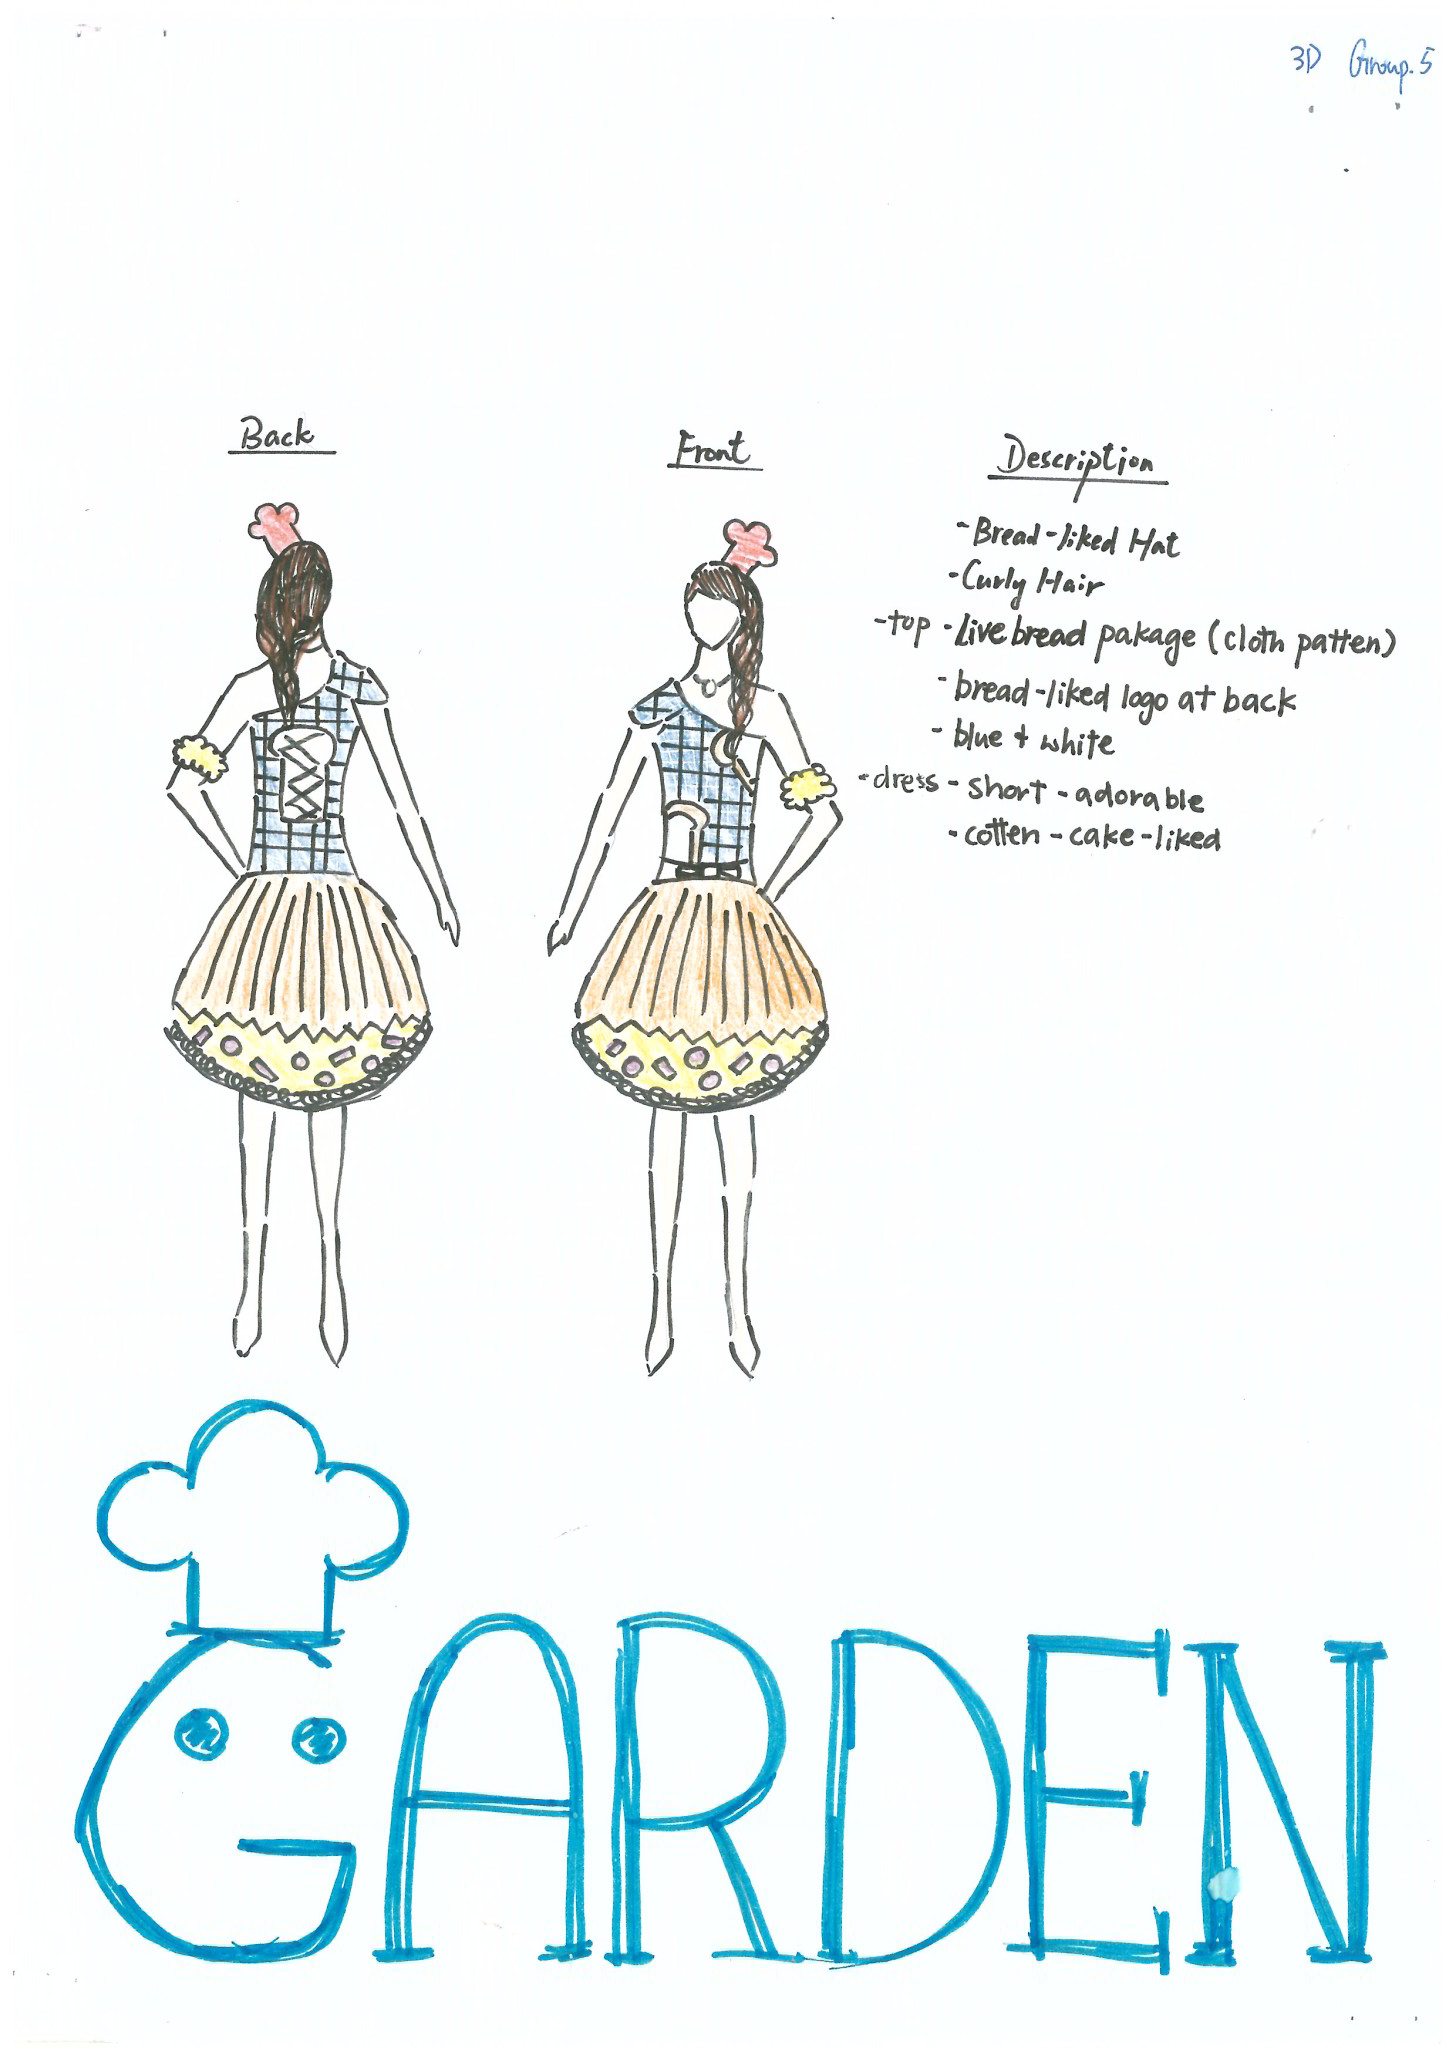 3D Group.5
Back
Front
Description
-Bread-liked Hat
-Curly Hair
-top -Live bread pakage (cloth patten)
-bread-liked logo at back
-blue + white
-dress -short -adorable
-cotten -cake-liked
GARDEN